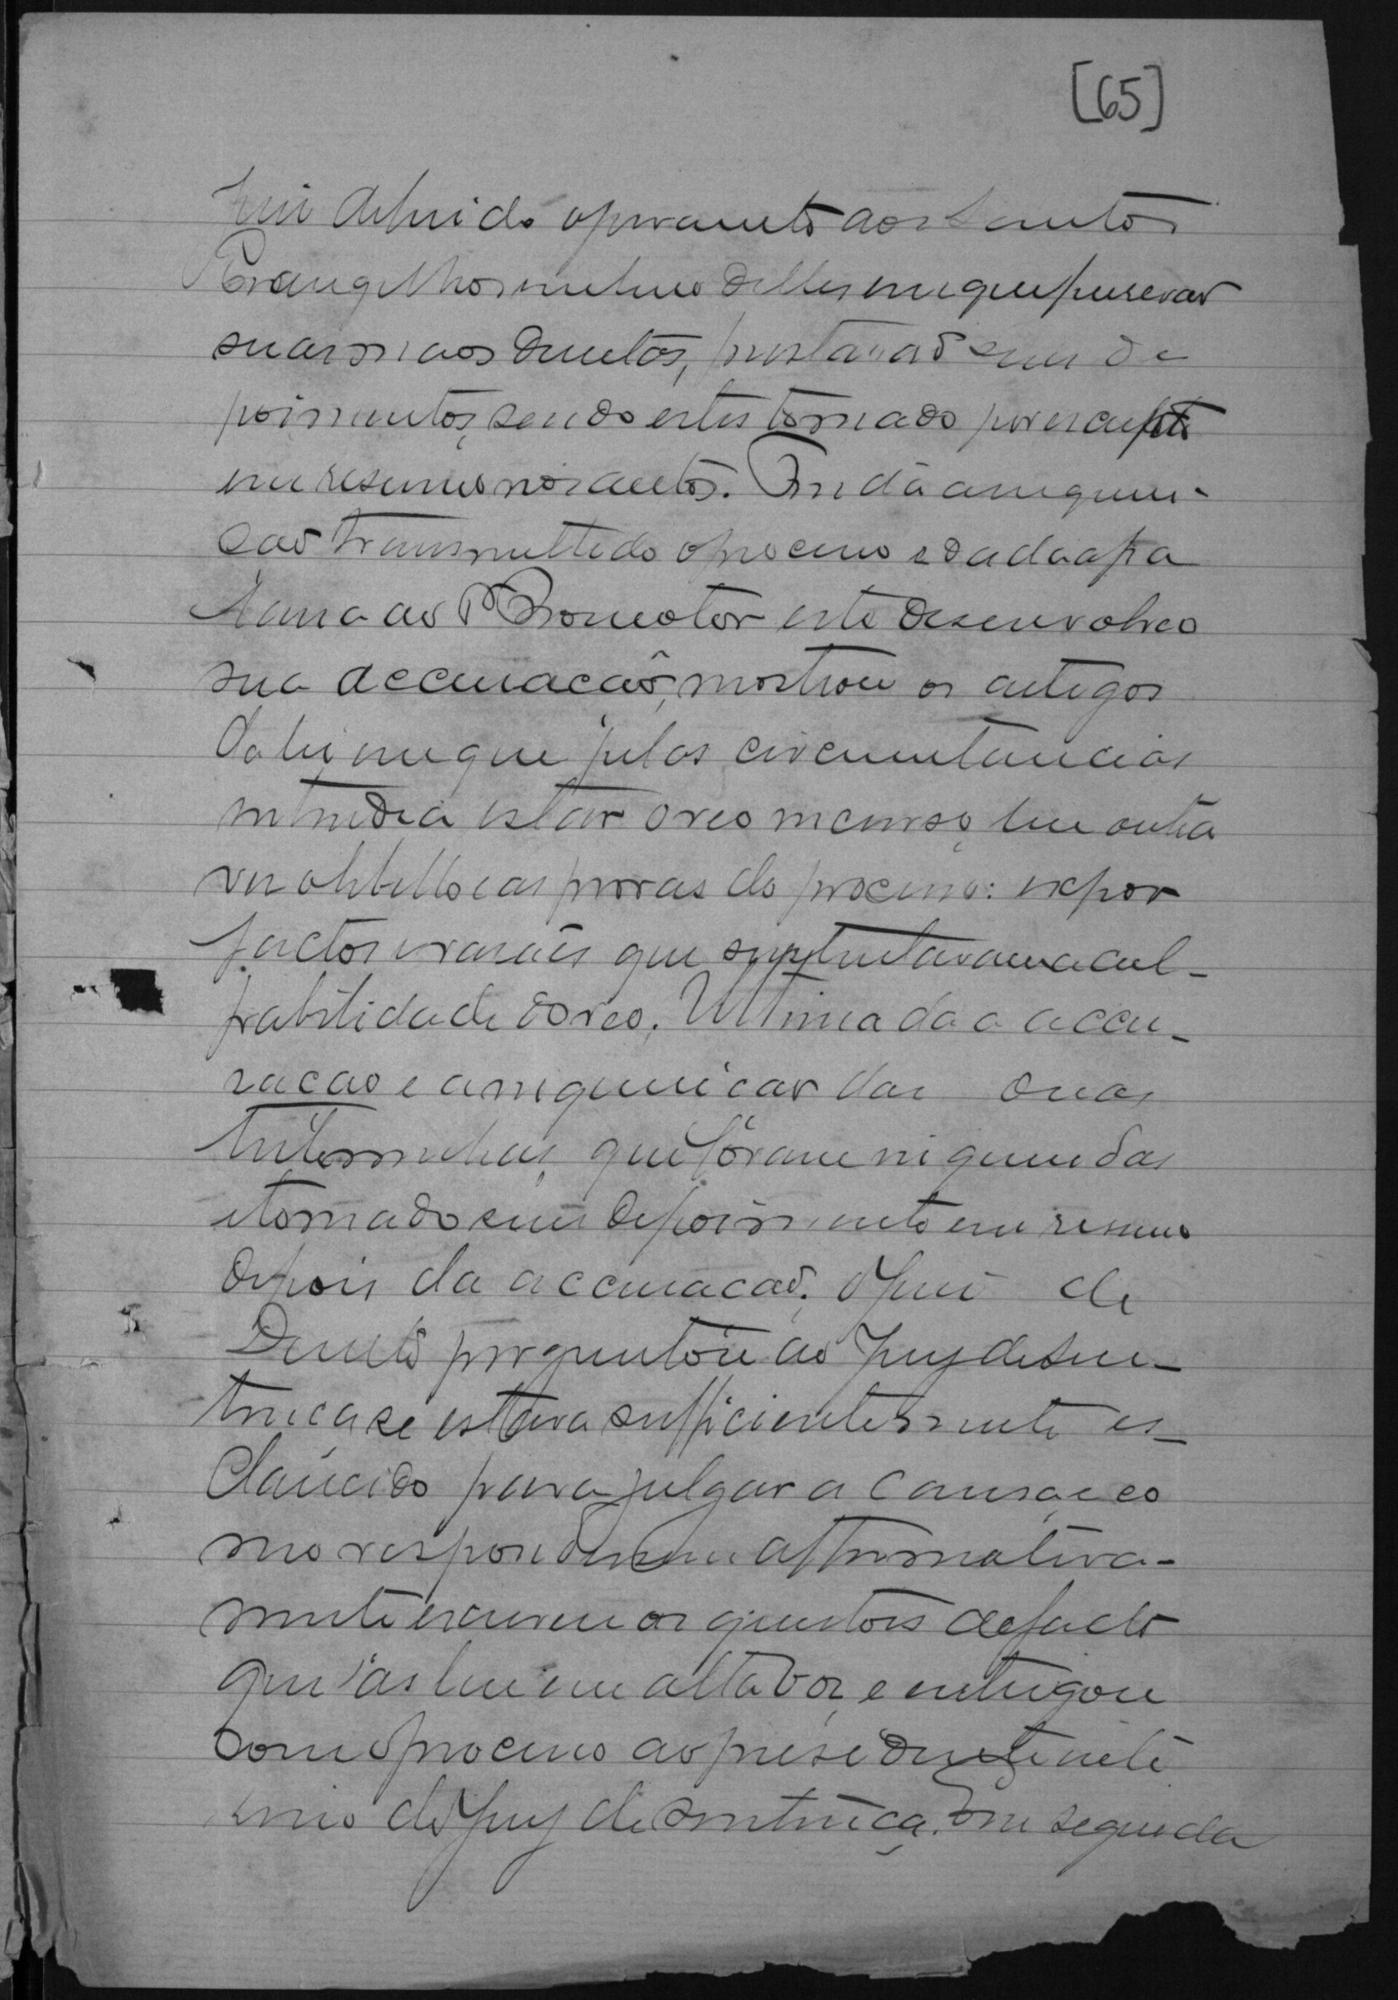 [65]
lhei deferido o juramento aos Santos
Evangelhos um livro delles em que puserão
suas mãos direitas, prestarão seus de
poimentos, sendo estes tomado por escripto
em resumo nos autos. Finda a inquiri-
ção transmittido o processo e dada a pa
lavra ao Promotor este desenvolveo
sua accusacão, mostrou os artigos
da lei em que pelas circumstancias
entendia estar o reo incurso, leu outra
vez o libello e as provas do processo: expor
factos e rasões que sustentavam a cul-
pabilidade do reo. Ultimada a accu-
zacão e a inquiricão das duas
testemunhas, que fôram inqueridas
e tomado seus depoimento em resumo
depois da accusacão, o Juiz de
Direito perguntou ao Jury de Sen-
tença se estava sufficientemente es-
clarecido para julgar a causa, e co
mo respondessem affirmativa-
mente escreveu as questões de facto
que as leu em alta voz, e entregou
com o processo ao presidente inte
rino do Jury de Sentença. Em seguida